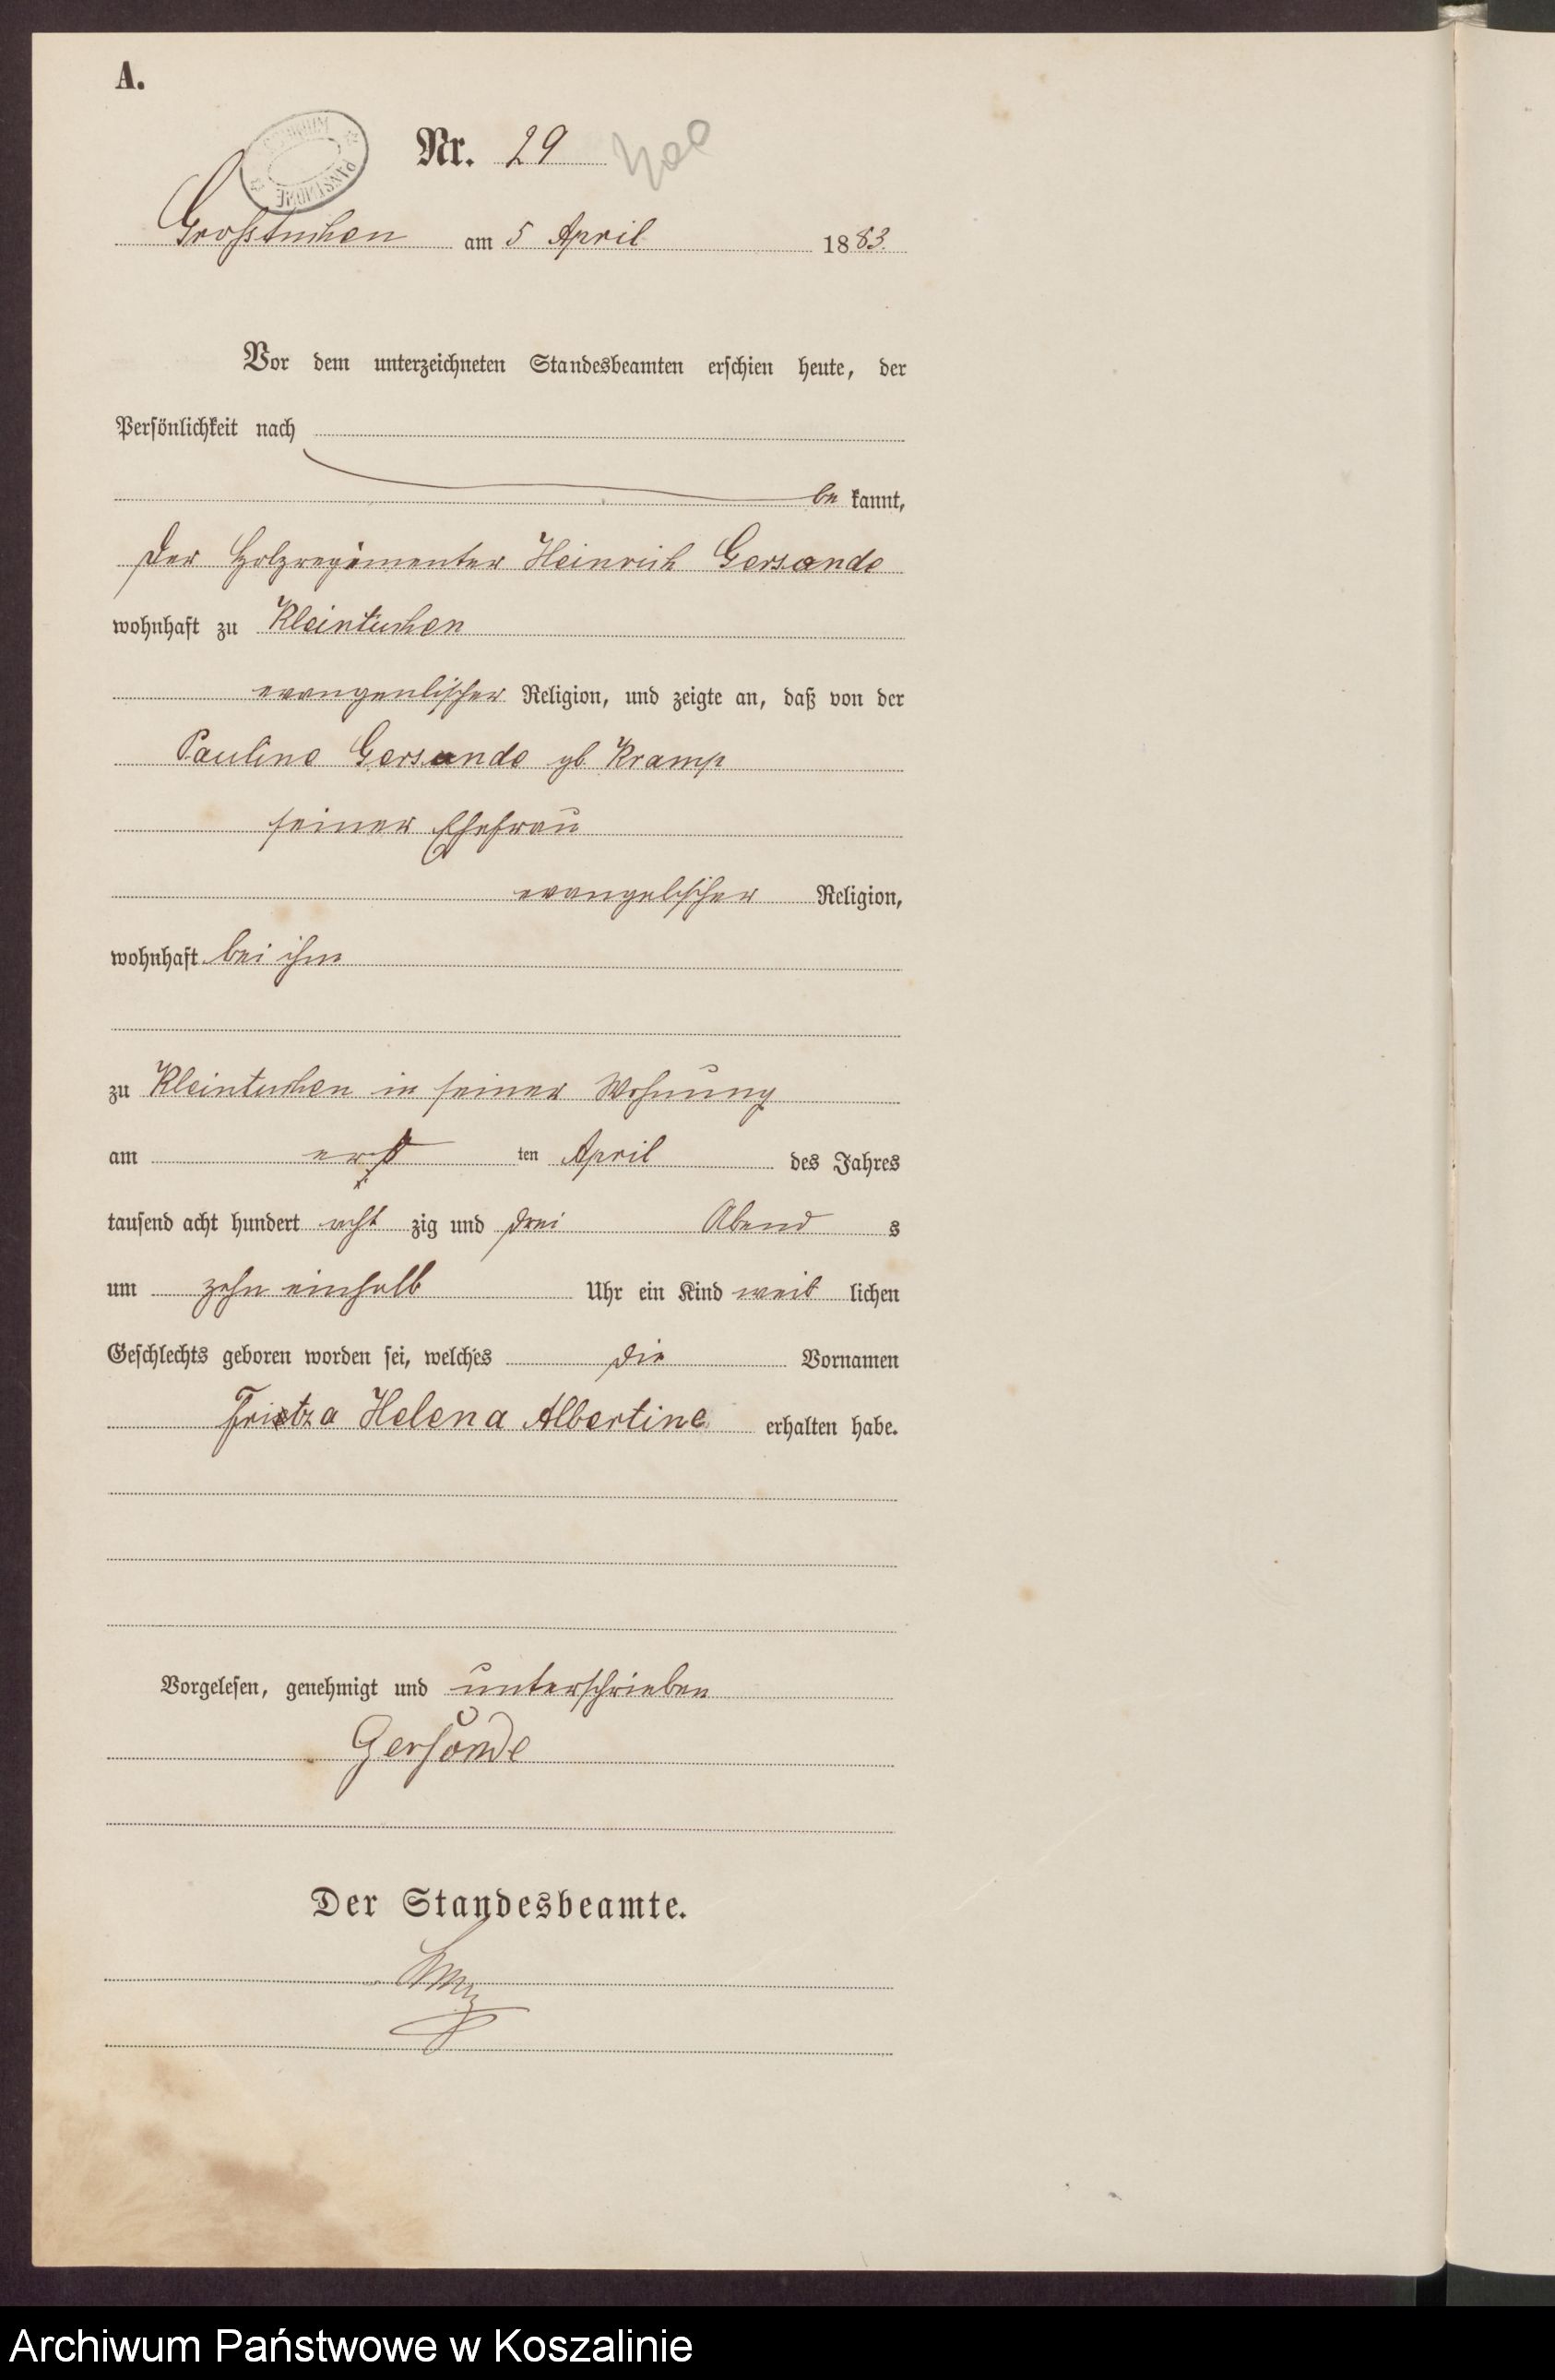 A.
Nr. 29
Großtuchen am 5 April 1883.
Vor dem unterzeichneten Standesbeamten erschien heute, der
Persönlichkeit nach
be kannt,
der Holzregimenter Heinrich Gersonde
wohnhaft zu Kleintuchen
evangenlischer Religion, und zeigte an, daß von der
Pauline Gersonde gb Kramp
seiner Ehefrau
evangelischer Religion,
wohnhaft bei ihm
zu Kleintuchen in seiner Wohnung
am erst ten April des Jahres
tausend acht hundert acht zig und drei Abend s
um zehn einhalb Uhr ein Kind weib lichen
Geschlechts geboren worden sei, welches die Vornamen
Helena Albertine erhalten habe.
Vorgelesen, genehmigt und unterschrieben
Gersonde
Der Standesbeamte.
Archiwum Państwowe w Koszalinie